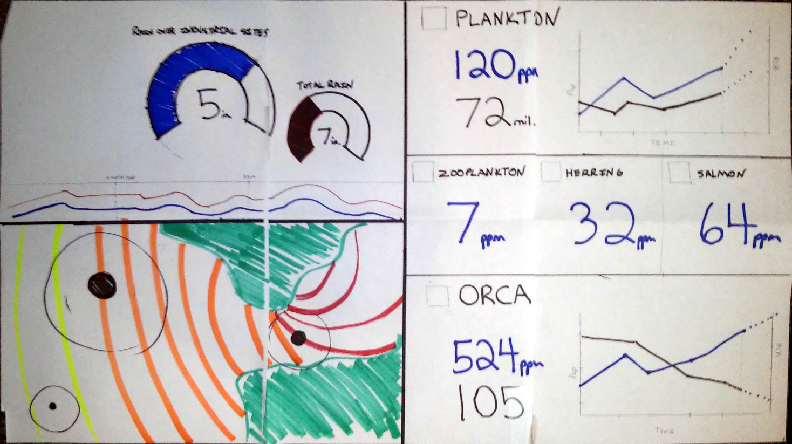 RAIN OVER INDUSTRIAL SITES
TOTAL RAIN
5in
7in
PLANKTON
120ppm
72mil.
TIME
ZOOPLANKTON
HERRING
SALMON
7ppm
32ppm
64ppm
ORCA
524ppm
105
TIME